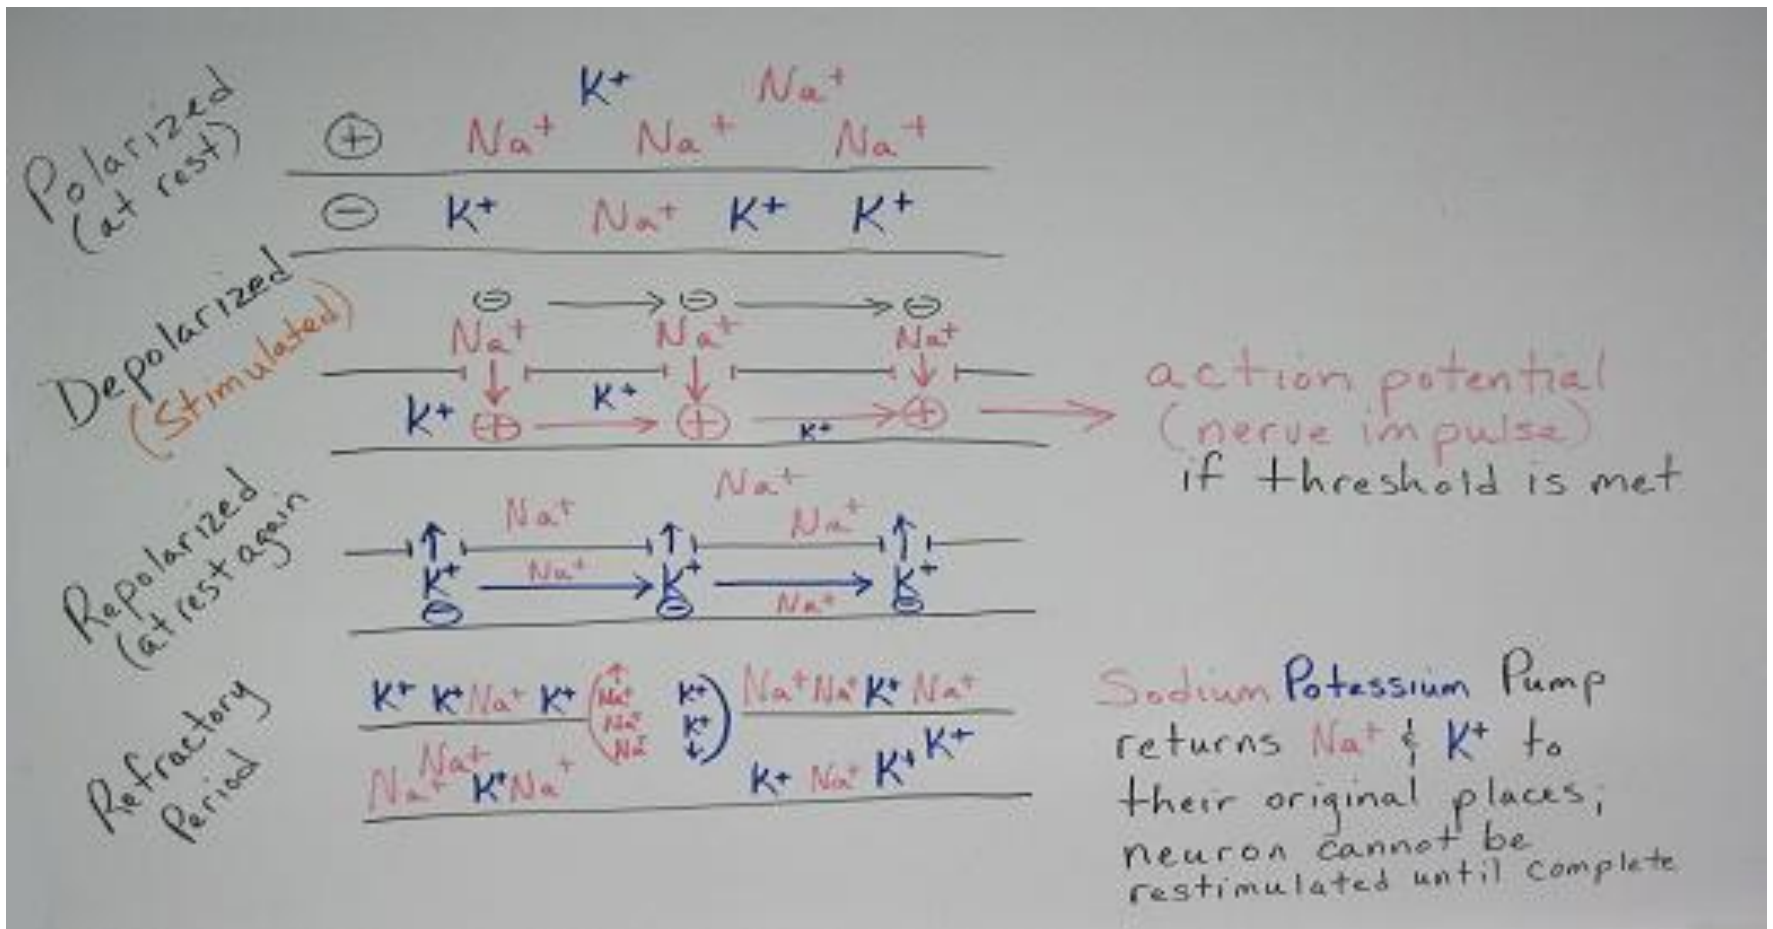 Polarized
(at rest)
K+ Na+
⊕ Na+ Na+ Na+
⊖ K+ Na+ K+ K+
Depolarized
(Stimulated)
⊖ → ⊖ → ⊖
Na+ Na+ Na+
K+ ⊕ → K+ ⊕ → K+ ⊕ →
action potential
(nerve impulse)
if threshold is met
Repolarized
(at rest again
Na+ Na+ Na+
K+ Na+ K+ Na+ K+
⊖ ⊖ ⊖
Refractory
Period
K+ K+ Na+ K+ (Na+ K+) Na+ Na+ K+ Na+
Na+ K+
Na+ K+
Na+ Na+ K+ Na+ K+ Na+ K+ K+
Sodium Potessium Pump
returns Na+ & K+ to
their original places;
neuron cannot be
restimulated until complete